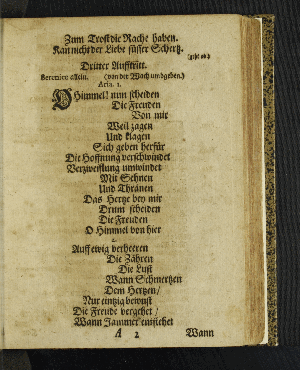 Zum Trost die Rache haben.
Kan nicht der Liebe süsser Schertz.
[geht ab]
Dritter Aufftritt.
Berenice allein. (von der Wach umbgeben.)
Aria. 1.
O Himmel! nun scheiden
Die Freuden
Von mir
Weil zagen
Und klagen
Sich geben herfür
Die Hoffnung verschwindet
Verzweifflung umwindet
Mit Sehnen
Und Thränen
Das Hertze bey mir
Drum scheiden
Die Freuden
O Himmel von hier
2.
Auff ewig verheeren
Die Zähren
Die Lust
Wann Schmertzen
Dem Hertzen/
Nur eintzig bewust
Die Freude vergehet/
Wann Jammer entstehet
A 2 Wann